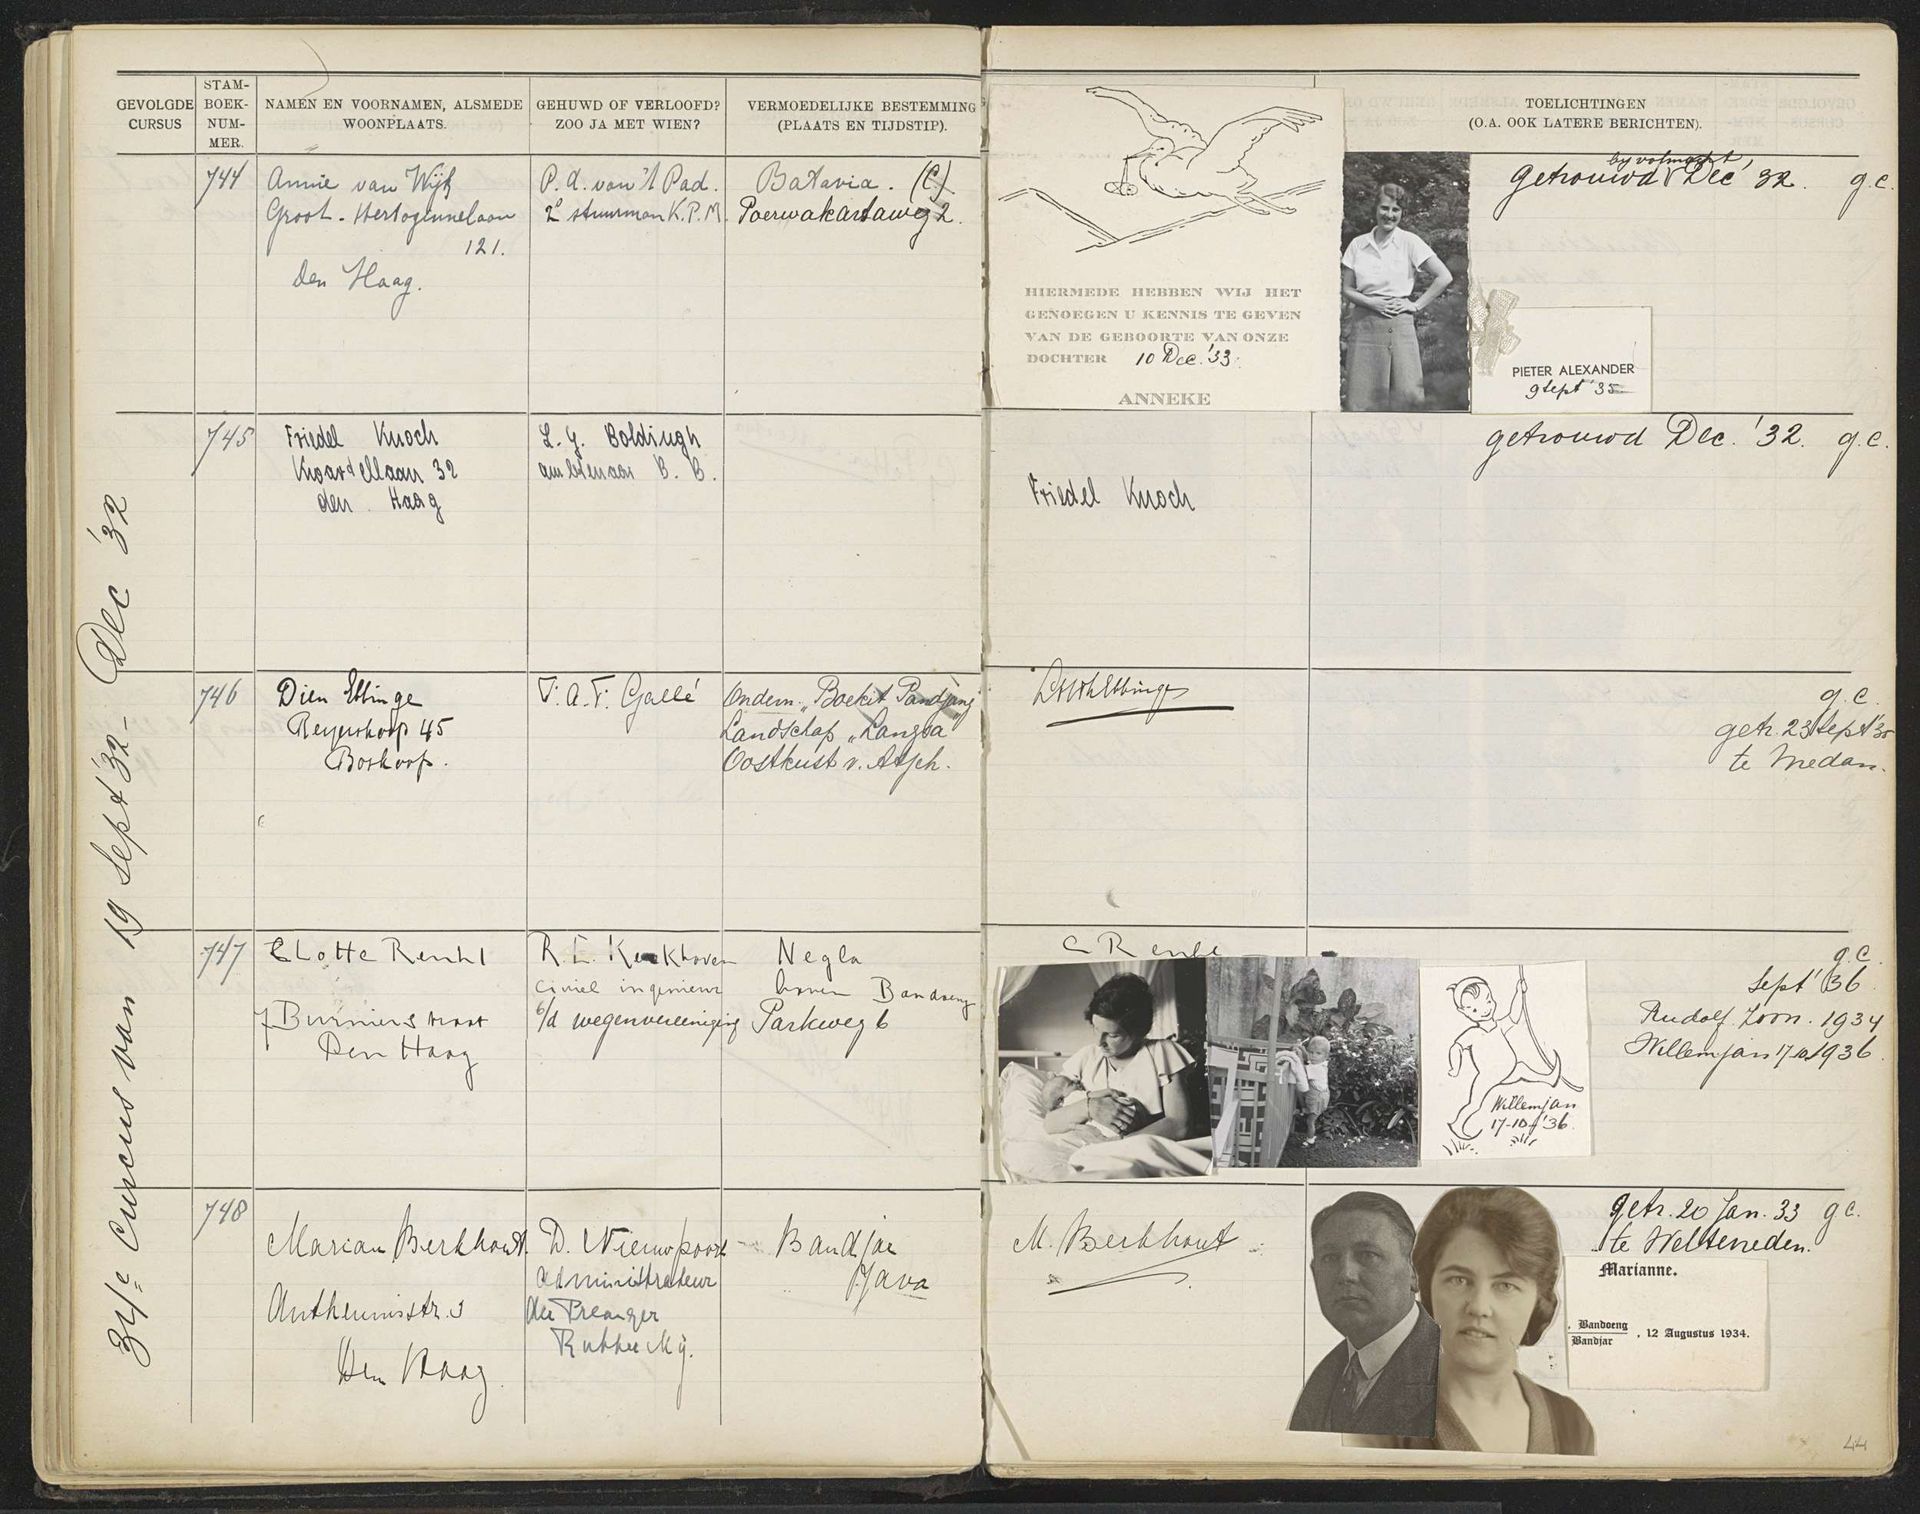 GEVOLGDE CURSUS
STAM-BOEK-NUM-MER.
NAMEN EN VOORNAMEN, ALSMEDE WOONPLAATS.
GEHUWD OF VERLOOFD? ZOO JA MET WIEN?
VERMOEDELIJKE BESTEMMING (PLAATS EN TIJDSTIP).
TOELICHTINGEN
(O.A. OOK LATERE BERICHTEN).
34e Cursus van 19 Sept '32 - Dec '32
744
Annie van Wijk
Groot-Hertoginnelaan
121.
den Haag.
P. A. van 't Pad.
2e stuurman K.P.M.
Batavia. (C)
Poerwakartaweg 2.
HIERMEDE HEBBEN WIJ HET
GENOEGEN U KENNIS TE GEVEN
VAN DE GEBOORTE VAN ONZE
DOCHTER 10 Dec. '33.
ANNEKE
by volmacht
getrouwd Dec '32. g.c.
PIETER ALEXANDER
9 Sept '35
745
Friedel Knoch
Kwartellaan 32
den Haag
L. G. Boldingh
ambtenaar B. B.
Friedel Knoch
getrouwd Dec. '32. g.c.
746
Dien Ebbinge
Reyerskoop 45
Boskoop.
F. A. F. Gallé
Ondern. "Boekit Pandjang"
Landschap "Langsa"
Oostkust v. Atjeh.
Ebbinge
g.c.
getr. 23 Sept '35
te Medan.
747
Lotte Renkl
Burnierstraat
Den Haag
R. E. Kerkhoven
civiel ingenieur
b/d wegenvereeniging
Negla
boven Bandoeng
Parkweg 6
C Renkl
Willemjan
17-10-'36.
g.c.
Sept '36
Rudolf. Zoon. 1934
Willemjan 17/10 1936.
748
Marian Berkhout.
Anthemisstr. 3
Den Haag.
D. Nieuwpoort
administrateur
der Preanger
Rubber Mij.
Bandjar
Java
M. Berkhout
getr. 20 Jan. 33 g.c.
te Weltevreden.
Marianne.
Bandoeng
Bandjar, 12 Augustus 1934.
44